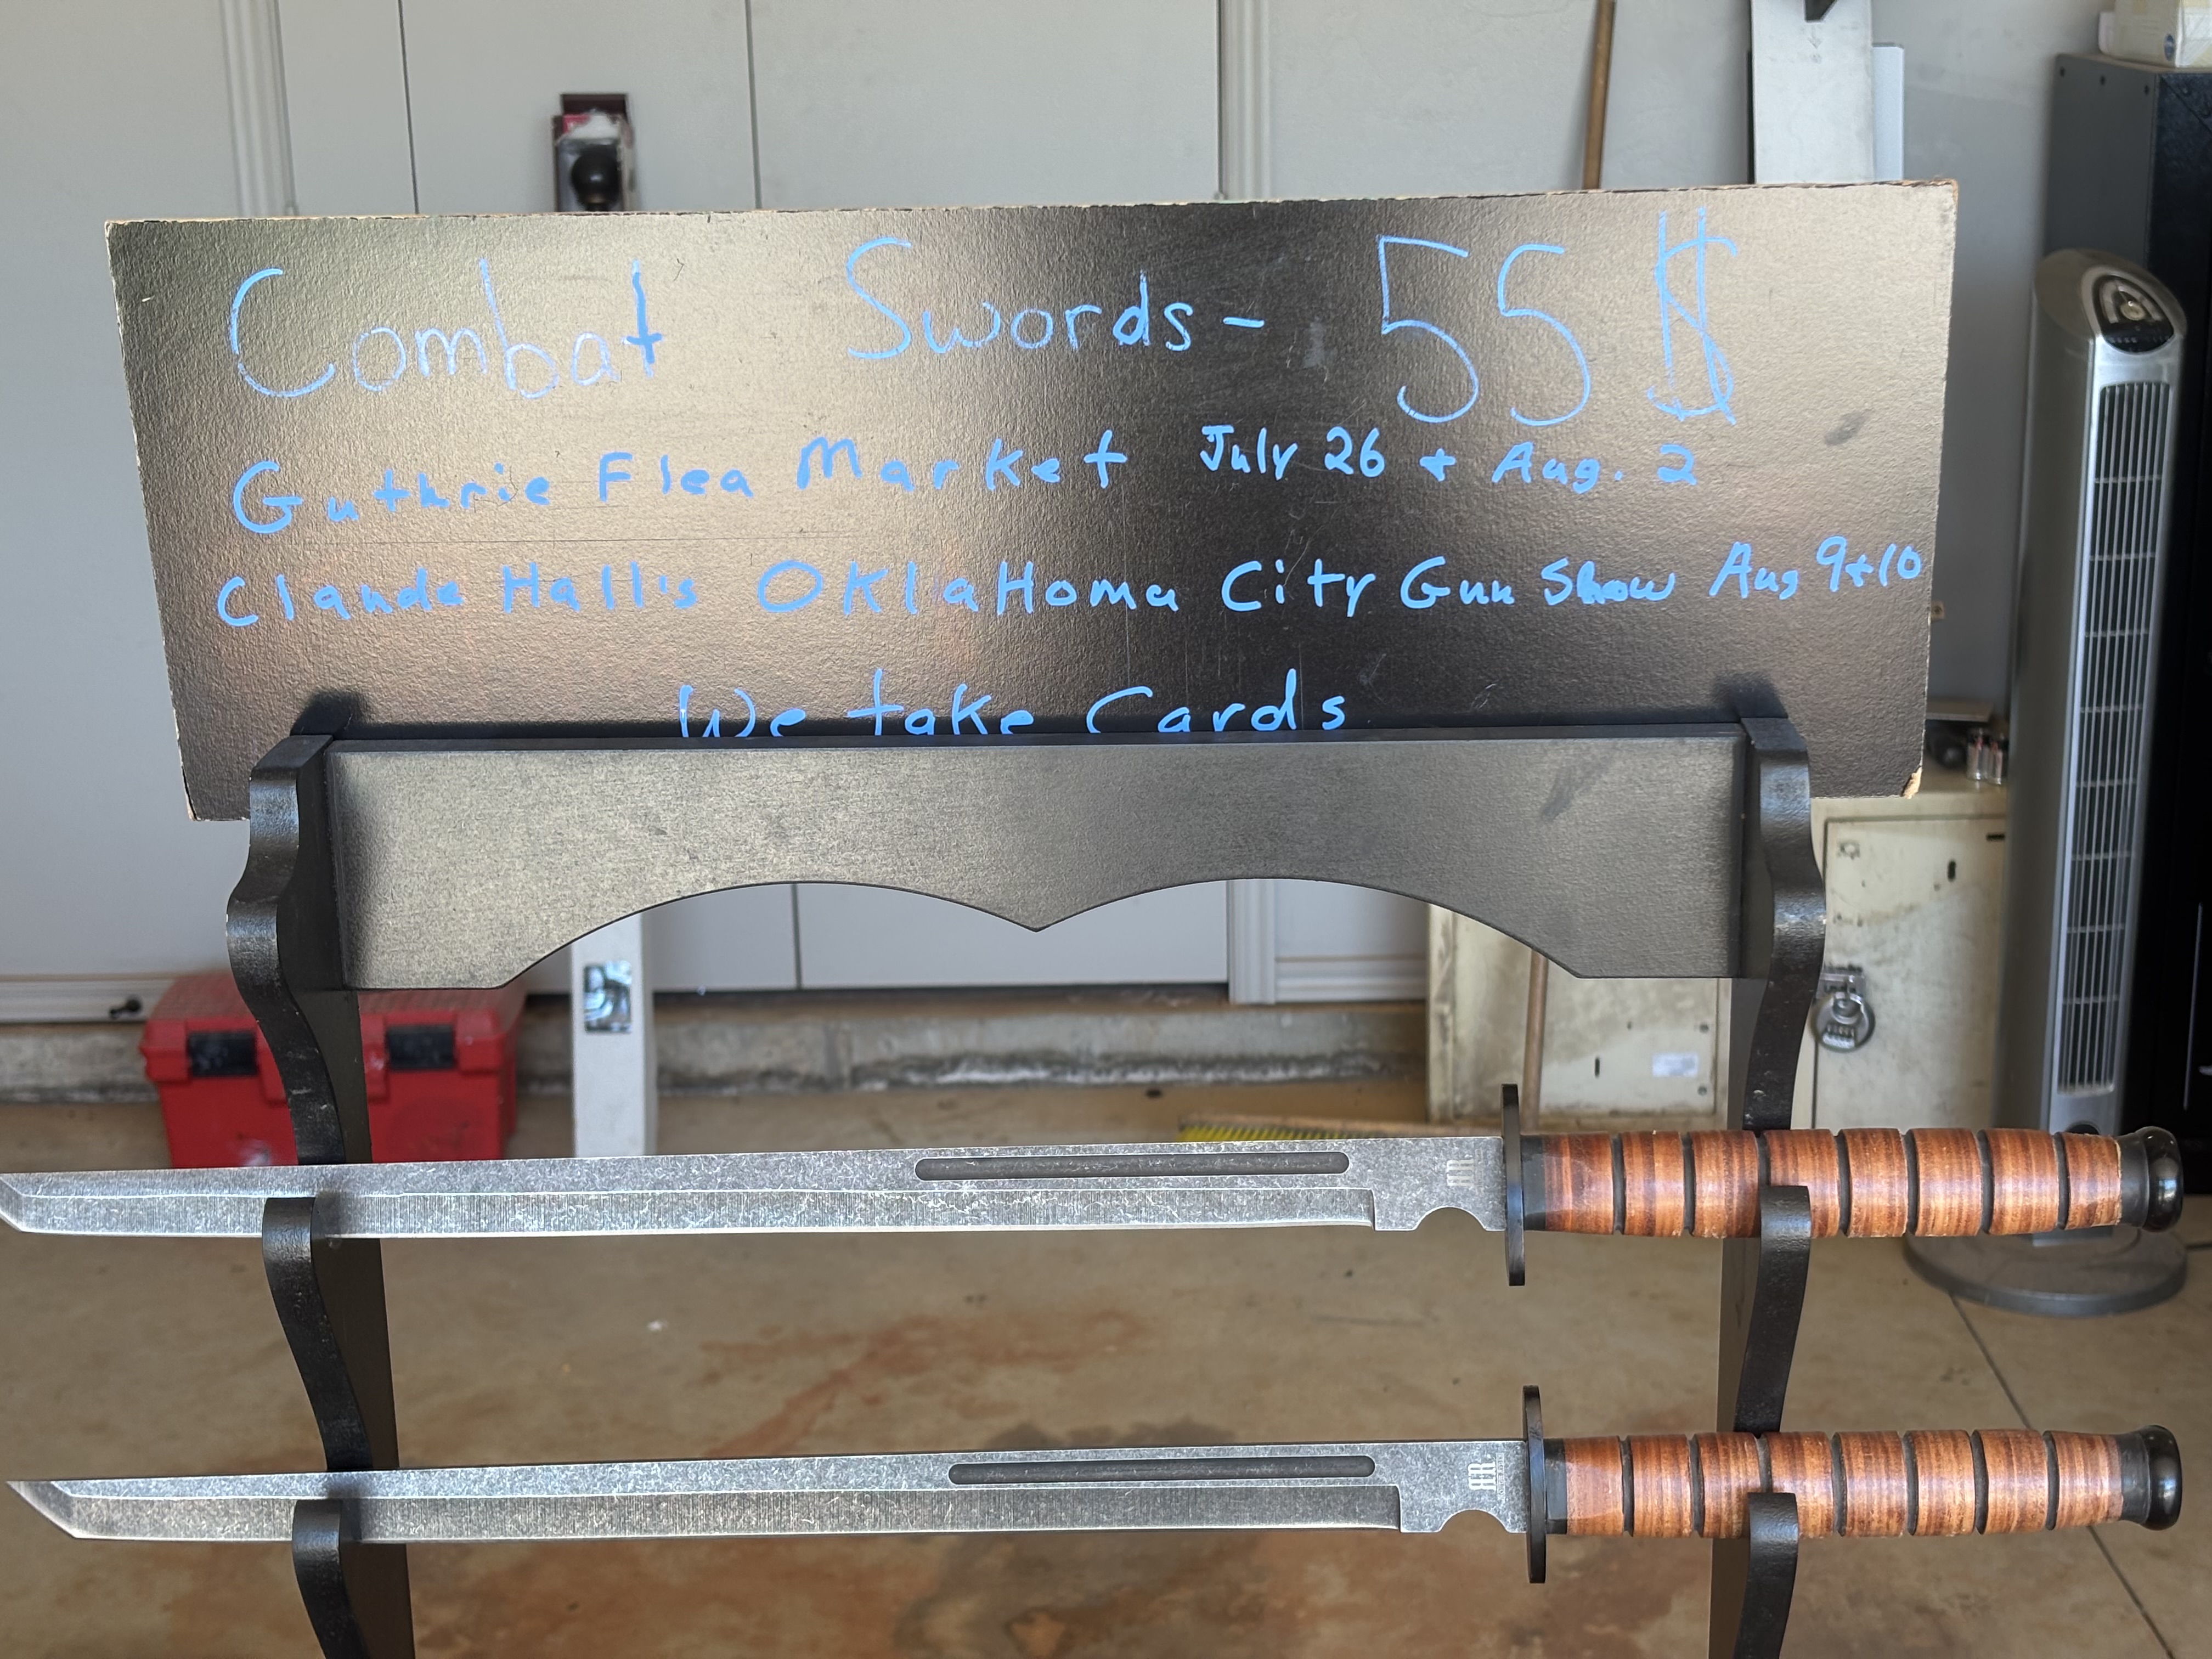 Combat Swords - 55 $
Guthrie Flea Market July 26 + Aug. 2
Claude Hall's OKlaHoma City Gun Show Aug 9+10
We take Cards